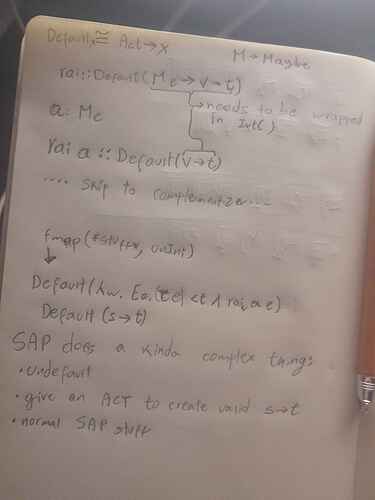 Default x ≅ Act → X
M → Maybe
rai :: Default (M e → V → t)
↳ needs to be wrapped
in Int( )
a: M e
rai a :: Default (V → t)
.... Skip to complementizer...
fmap (*stuff*, unInt)
↓
Default (λw. Ǝa. (t e) < t ∧ rai, a e)
Default (s → t)
SAP does a kinda complex thing:
• undefault
• give an ACT to create valid s → t
• normal SAP stuff